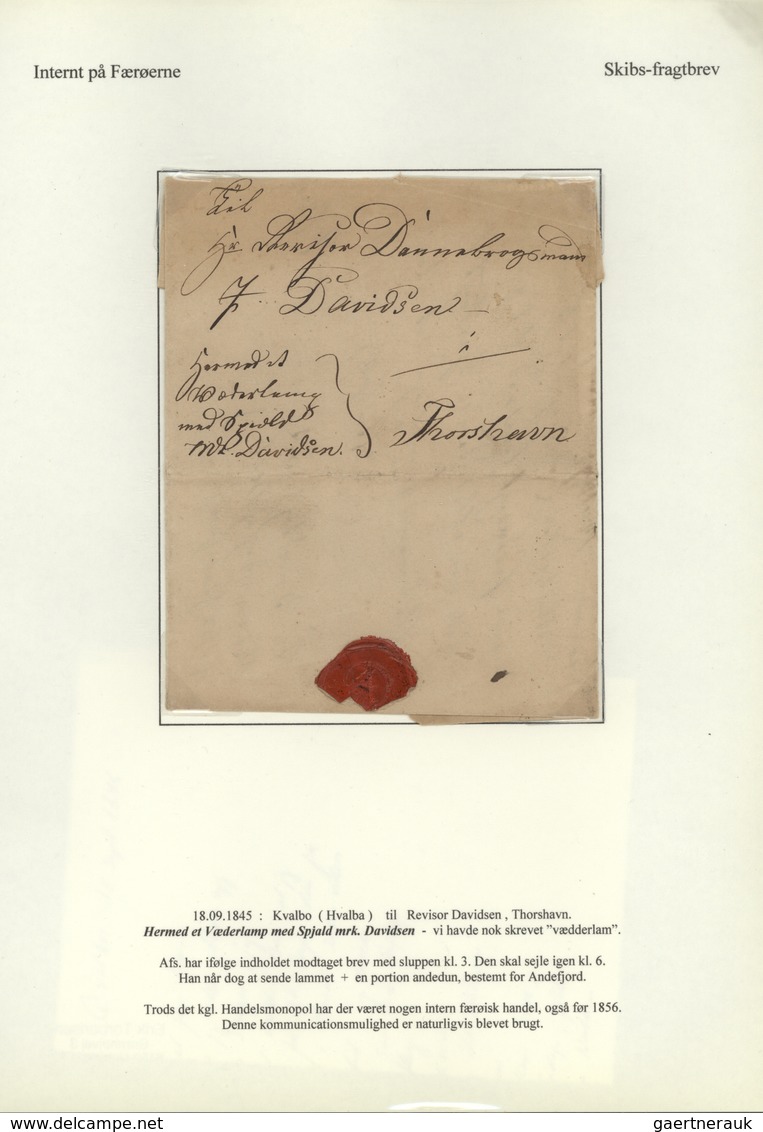 Internt på Færøerne
Skibs-fragtbrev
Til
Hr Revisor Dannebrogsmand
J. Davidsen
i
Thorshavn
Hermed et
Væderlamp
med Spjæld
mrk. Davidsen.
18.09.1845 : Kvalbo ( Hvalba ) til Revisor Davidsen , Thorshavn.
Hermed et Væderlamp med Spjald mrk. Davidsen - vi havde nok skrevet ”vædderlam”.
Afs. har ifølge indholdet modtaget brev med sluppen kl. 3. Den skal sejle igen kl. 6.
Han når dog at sende lammet + en portion andedun, bestemt for Andefjord.
Trods det kgl. Handelsmonopol har der været nogen intern færøisk handel, også før 1856.
Denne kommunicationsmulighed er naturligvis blevet brugt.
www.delcampe.net
gaertnerauk